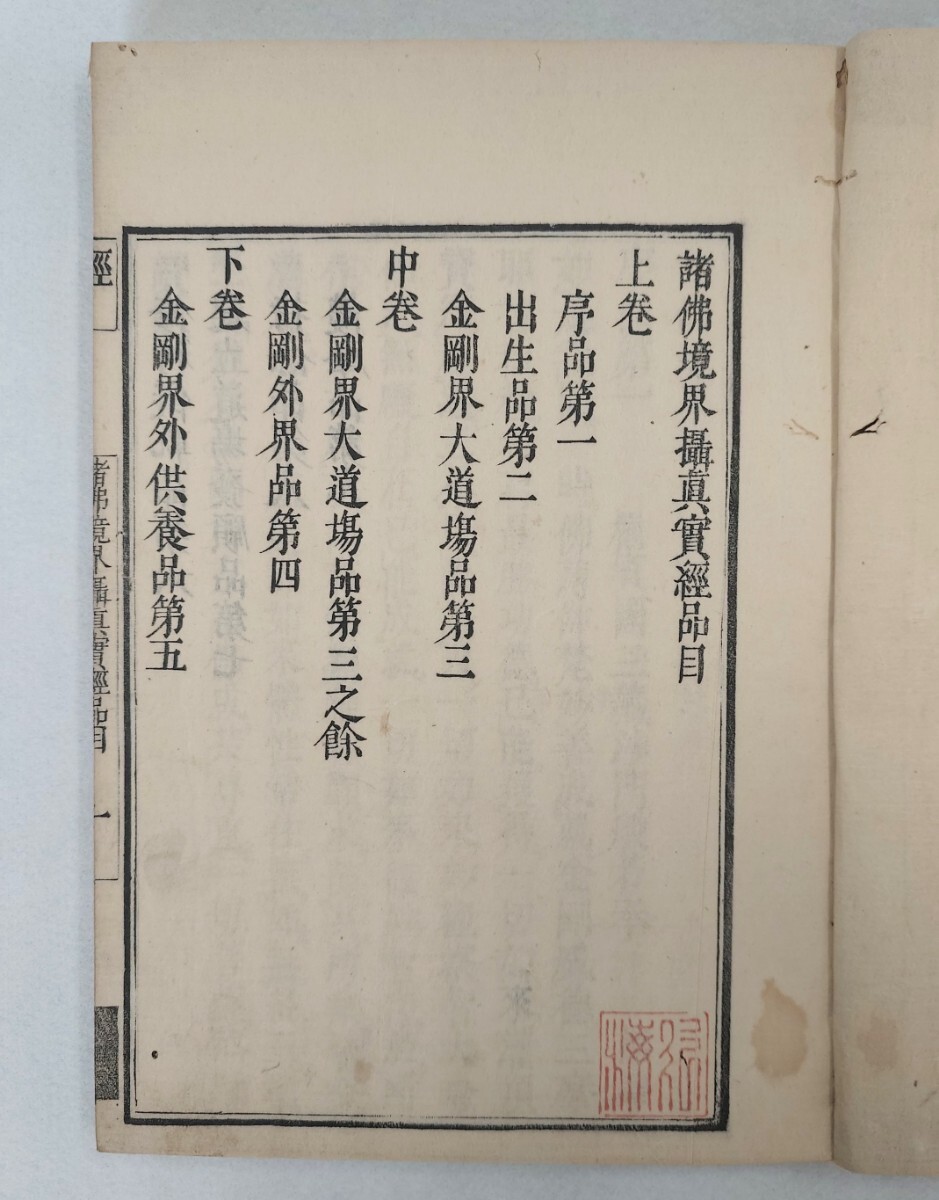 諸佛境界攝真實經品目
上卷
序品第一
出生品第二
金剛界大道塲品第三
中卷
金剛界大道塲品第三之餘
金剛外界品第四
下卷
金剛界外供養品第五
經
諸佛境界攝真實經品目
一